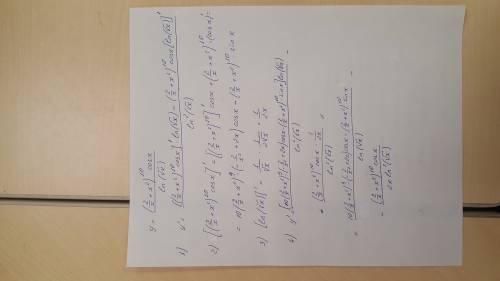 y = (2/x + x²)¹⁰ cosx / ln(√x)
1) y' = ([(2/x + x²)¹⁰ cosx]' ln(√x) - (2/x + x²)¹⁰ cosx [ln(√x)]') / ln²(√x)
2) [(2/x + x²)¹⁰ cosx]' = [(2/x + x²)¹⁰]' cosx + (2/x + x²)¹⁰ (cosx)' =
= 10(2/x + x²)⁹ (-2/x² + 2x) cosx - (2/x + x²)¹⁰ sinx
3) [ln(√x)]' = 1/√x · 1/2√x = 1/2x
4) y' = [10(2/x + x²)⁹ (-2/x² + 2x) cosx - (2/x + x²)¹⁰ sinx] ln(√x) / ln²(√x) -
- (2/x + x²)¹⁰ cosx · 1/2x / ln²(√x) =
= (10(2/x + x²)⁹ (-2/x² + 2x) cosx - (2/x + x²)¹⁰ sinx) / ln(√x) -
- (2/x + x²)¹⁰ cosx / 2x ln²(√x)